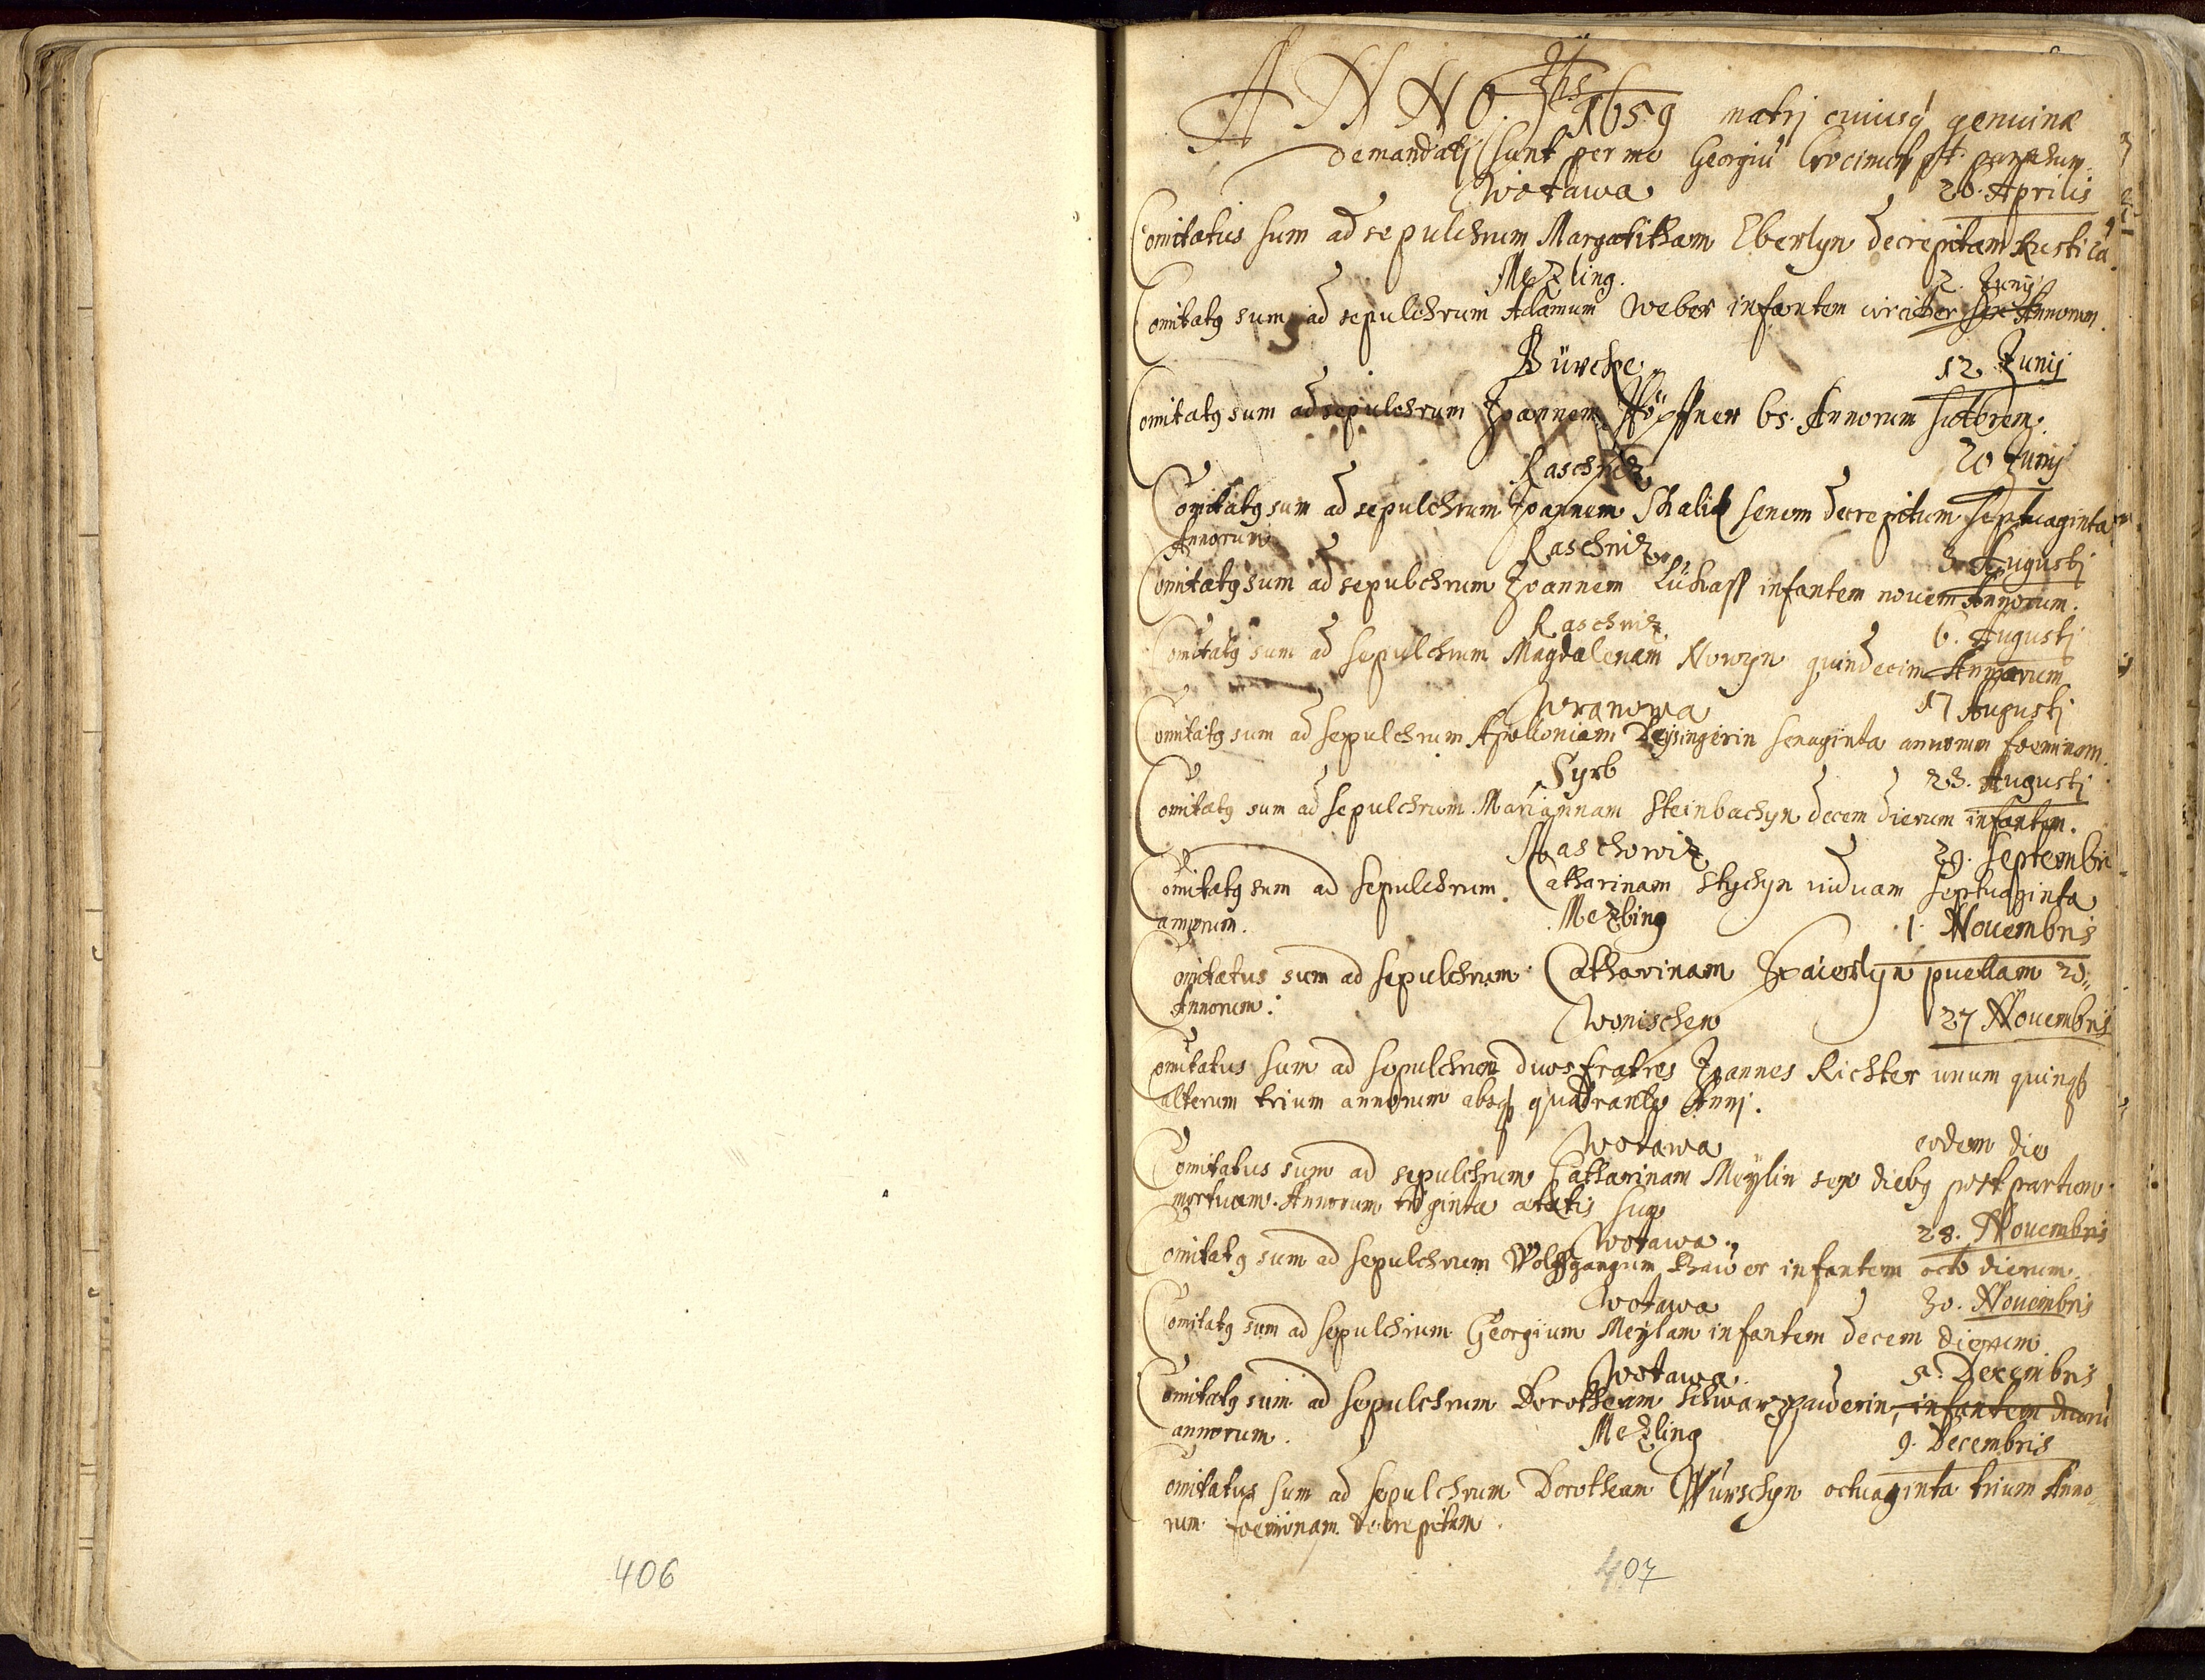 Jhs
ANNO. 1659 matrj cuiusq genuinæ
demandatj sunt per me Georgiu Crocinum
Wotawa 26. Aprilis
Comitatus sum ad sepulchrum Margaritham Eberlyn decrepitam Rusticã.
Mezling. 2. Junij
Comitatg sum ad sepulchrum Adamum Weber infantem circiter sex Annorum.
Bürcke 12. Junij
Comitatg sum ad sepulchrum Joannem Höpffner 65. Annorum sutorem.
Raschniz 20 Junij
Comitatg sum ad sepulchrum Joannem Skaliz senem decrepitum septuaginta
Annorum
Raschniz 3. Augustj
Comitatg sum ad sepulchrum Joannem Lukass infantem nouem Annorum.
Raschniz 6. Augustj
Comitatg sum ad sepulchrum Magdalenam Nowyn quindecim Annorum
Wranowa 17 Augustj
Comitatg sum ad sepulchrum Apolloniam Reysingerin sexaginta annorum foeminam.
Syrb 23. Augustj
Comitatg sum ad sepulchrum Mariannam Steinbachyn decem dierum infantem.
Maschowiz 29. Septembris
Comitatg sum ad sepulchrum Catharinam Stychyn uiduam septuaginta
annorum.
Mezling 1. Nouembris
Comitatus sum ad sepulchrum Catharinam Paierlyn puellam 20
Annorum.
Wonischen 27 Nouembris
Comitatus sum ad sepulchrum duos fratres Joannes Richter unum quinq
alterum trium annorum absq quadrante Annj.
Wotawa eodem die
Comitatus sum ad sepulchrum Catharinam Meylin sex diebg post partum
mortuam. Annorum triginta ætatis suæ
Wotawa. 28. Nouembris
Comitatg sum ad sepulchrum Wolffgangum Bawer infantem octo dierum
Wotawa 30. Nouembris
Comitatg sum ad sepulchrum Georgium Meylam infantem decem dierum
Wotawa 5. Decembris
Comitatg sum ad sepulchrum Dorotheam Schwarzpawerin, infantem duorũ
annorum.
Mezling 9. Decembris
Comitatus sum ad sepulchrum Dorotheam Würschyn octuaginta trium Anno-
rum foeminam decrepitam.
406
407